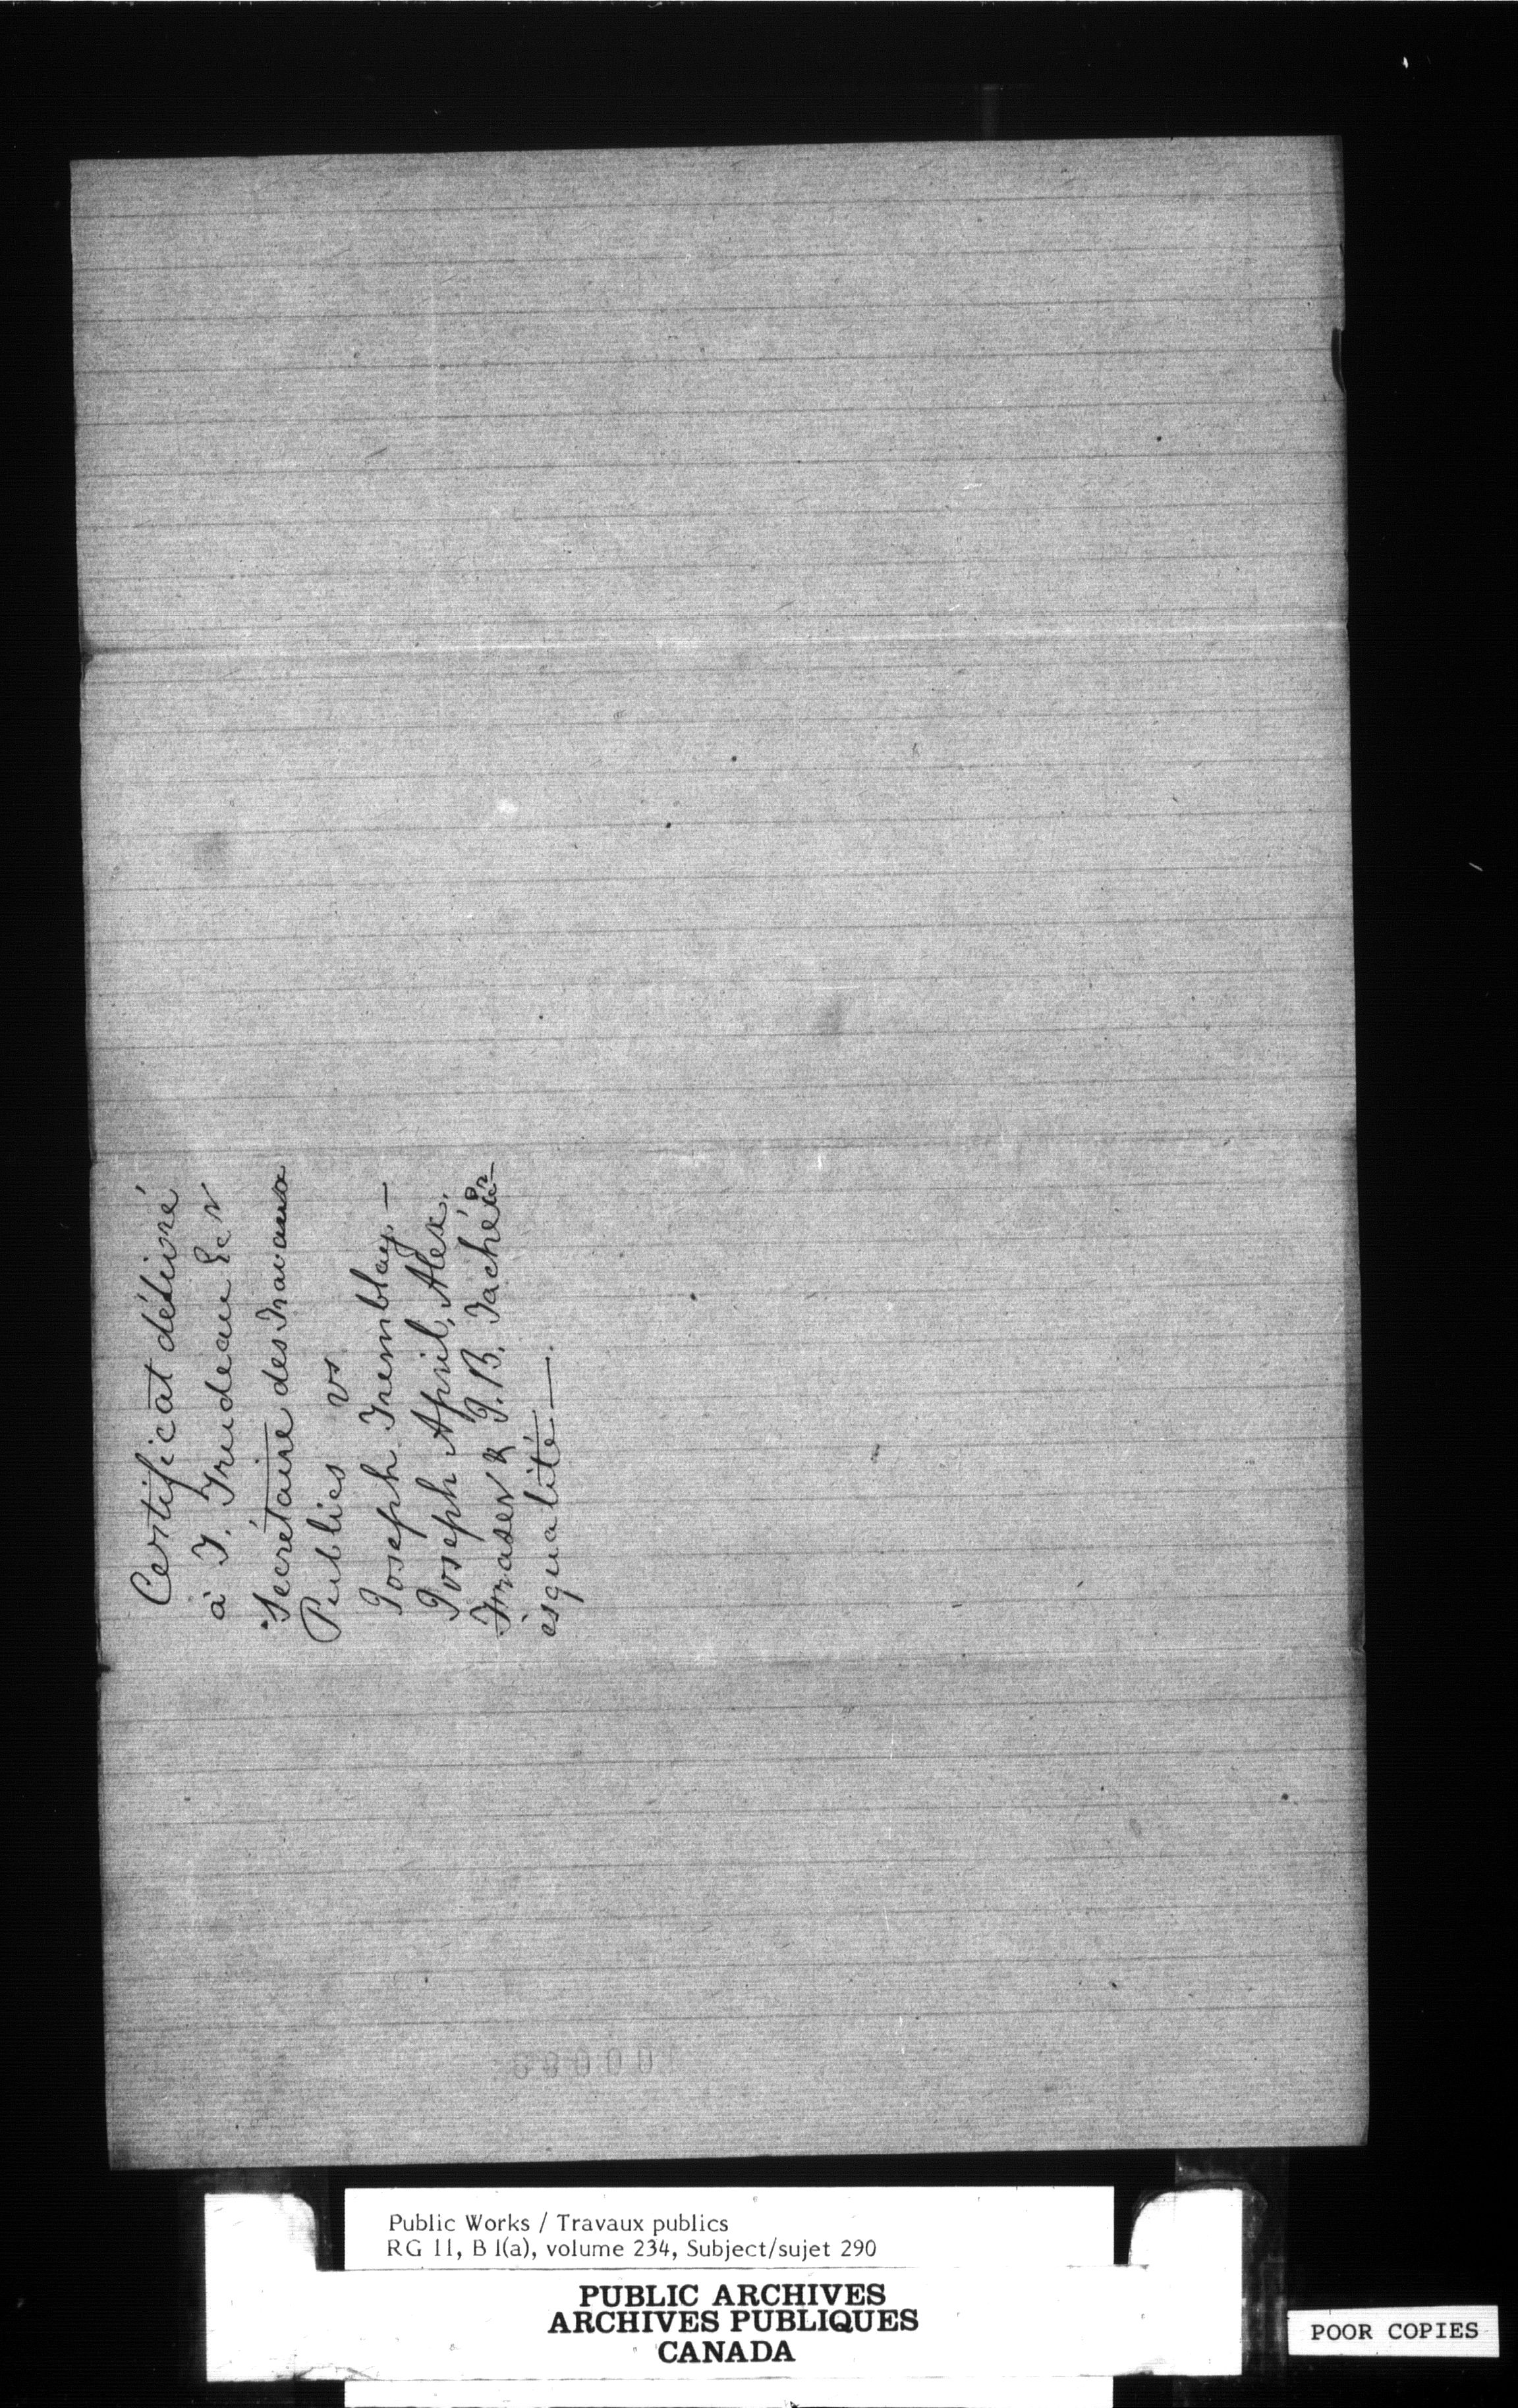 Certificat délivré
à T. Trudeau Ecr
Secrétaire des Travaux
Publics vs
Joseph Tremblay —
Joseph April, Alex.
Fraser & J.B. Taché
esqualité —
Public Works / Travaux publics
RG 11, B 1(a), volume 234, Subject/sujet 290
PUBLIC ARCHIVES
ARCHIVES PUBLIQUES
CANADA
POOR COPIES